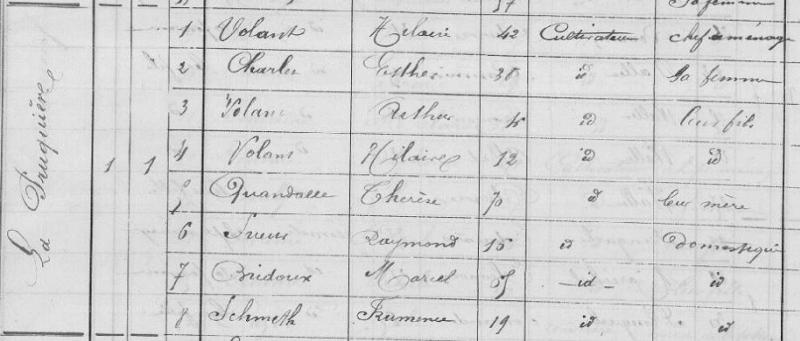 La Truquière
1 1
1 Volant Hilaire 42 Cultivateur chef de ménage
2 Charles Esther id Sa femme
3 Volant Arthur 15 id leur fils
4 Volant Hilaire 12 id id
5 Quandalle Thérèse 70 id leur mère
6 Sueur Raymond 16 id domestique
7 Bridoux Marcel id id
8 Schmeth 19 id id